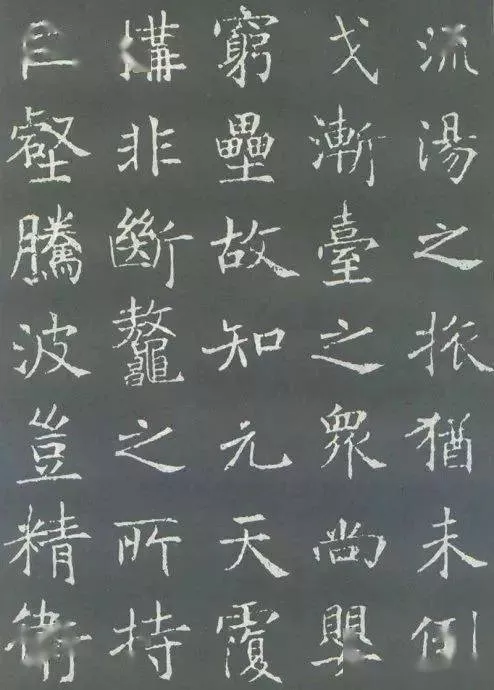 流湯之旅猶未倒
戈漸臺之眾尚嬰
窮壘故知元天覆
構非斷鼇之所持
巨壑騰波豈精衛